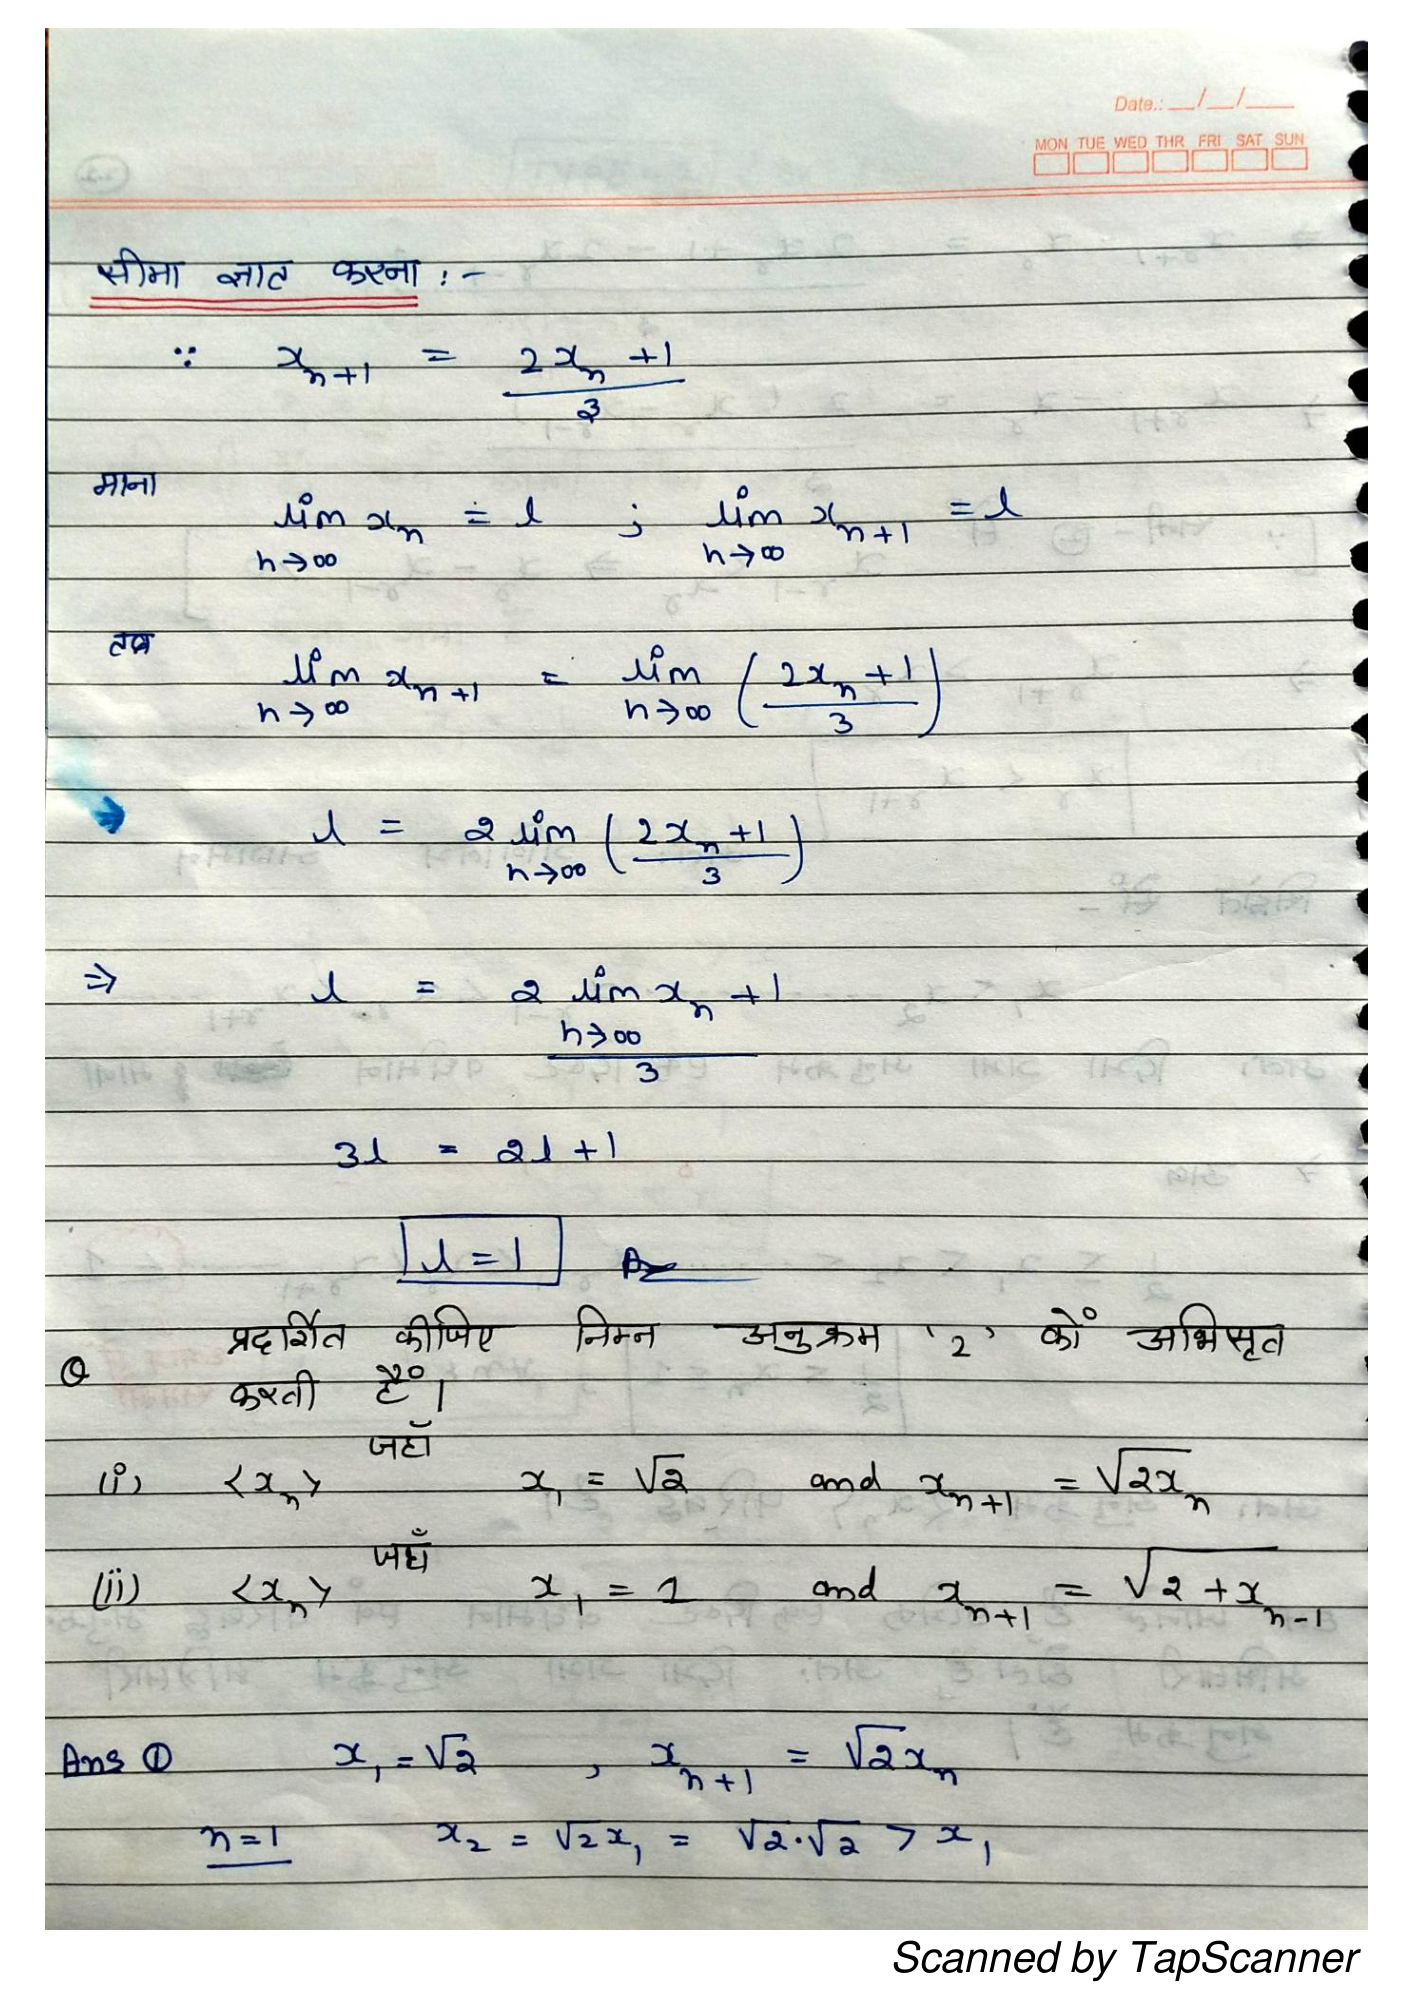 Date.: __/__/___
MON TUE WED THR FRI SAT SUN
सीमा ज्ञात करना :-
∵ x_{n+1} = (2x_n + 1)/3
माना
lim_{n→∞} x_n = l ; lim_{n→∞} x_{n+1} = l
तब
lim_{n→∞} x_{n+1} = lim_{n→∞} ((2x_n + 1)/3)
⇒ l = 2 lim_{n→∞} ((2x_n + 1)/3)
⇒ l = (2 lim_{n→∞} x_n + 1)/3
3l = 2l + 1
l = 1 Ans
Q प्रदर्शित कीजिए निम्न अनुक्रम '2' को अभिसृत
करती हैं।
(i) <x_n> जहाँ x_1 = √2 and x_{n+1} = √(2x_n)
(ii) <x_n> जहाँ x_1 = 1 and x_{n+1} = √(2 + x_{n-1})
Ans ① x_1 = √2 , x_{n+1} = √2x_n
n=1 x_2 = √2x_1 = √2·√2 > x_1
Scanned by TapScanner